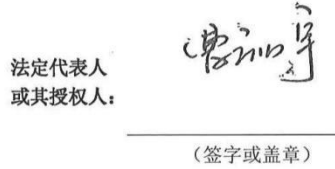 法定代表人
或其授权人：
（签字或盖章）